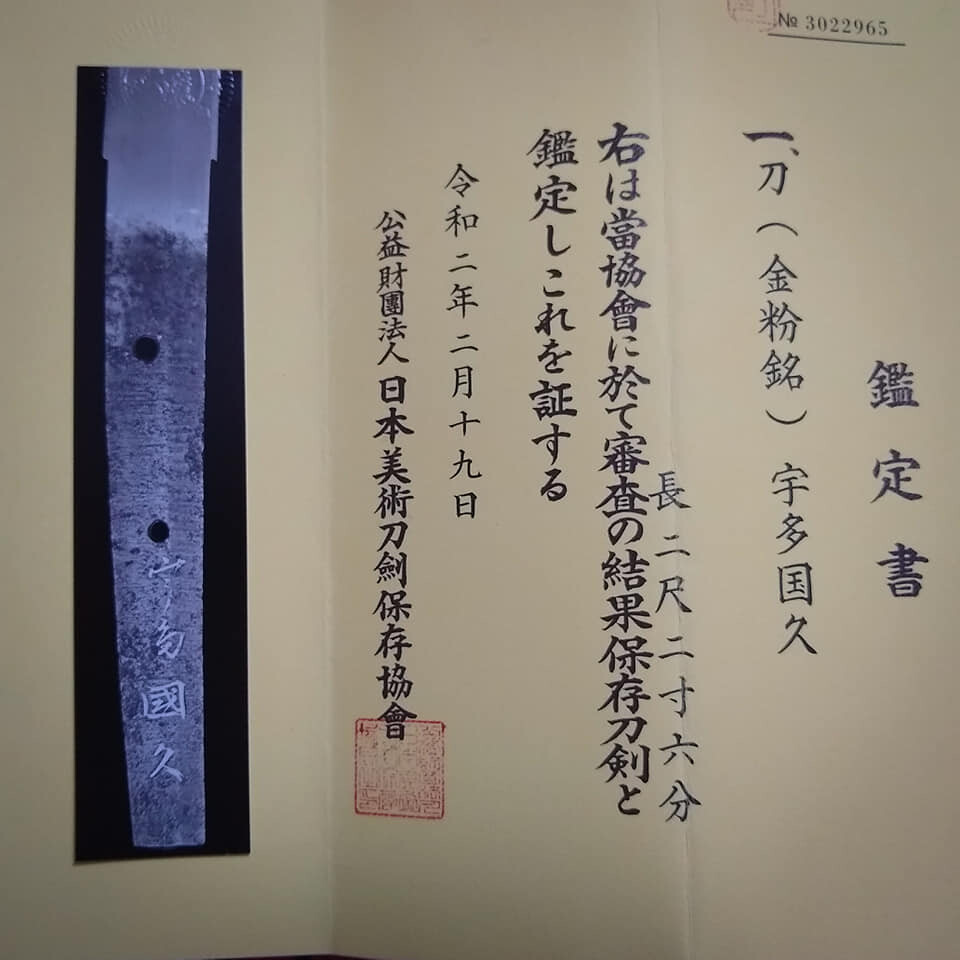 № 3022965
鑑定書
一、刀（金粉銘）宇多国久
長二尺二寸六分
右は當協會に於て審査の結果保存刀剣と
鑑定しこれを証する
令和二年二月十九日
公益財團法人日本美術刀劍保存協會
宇多國久